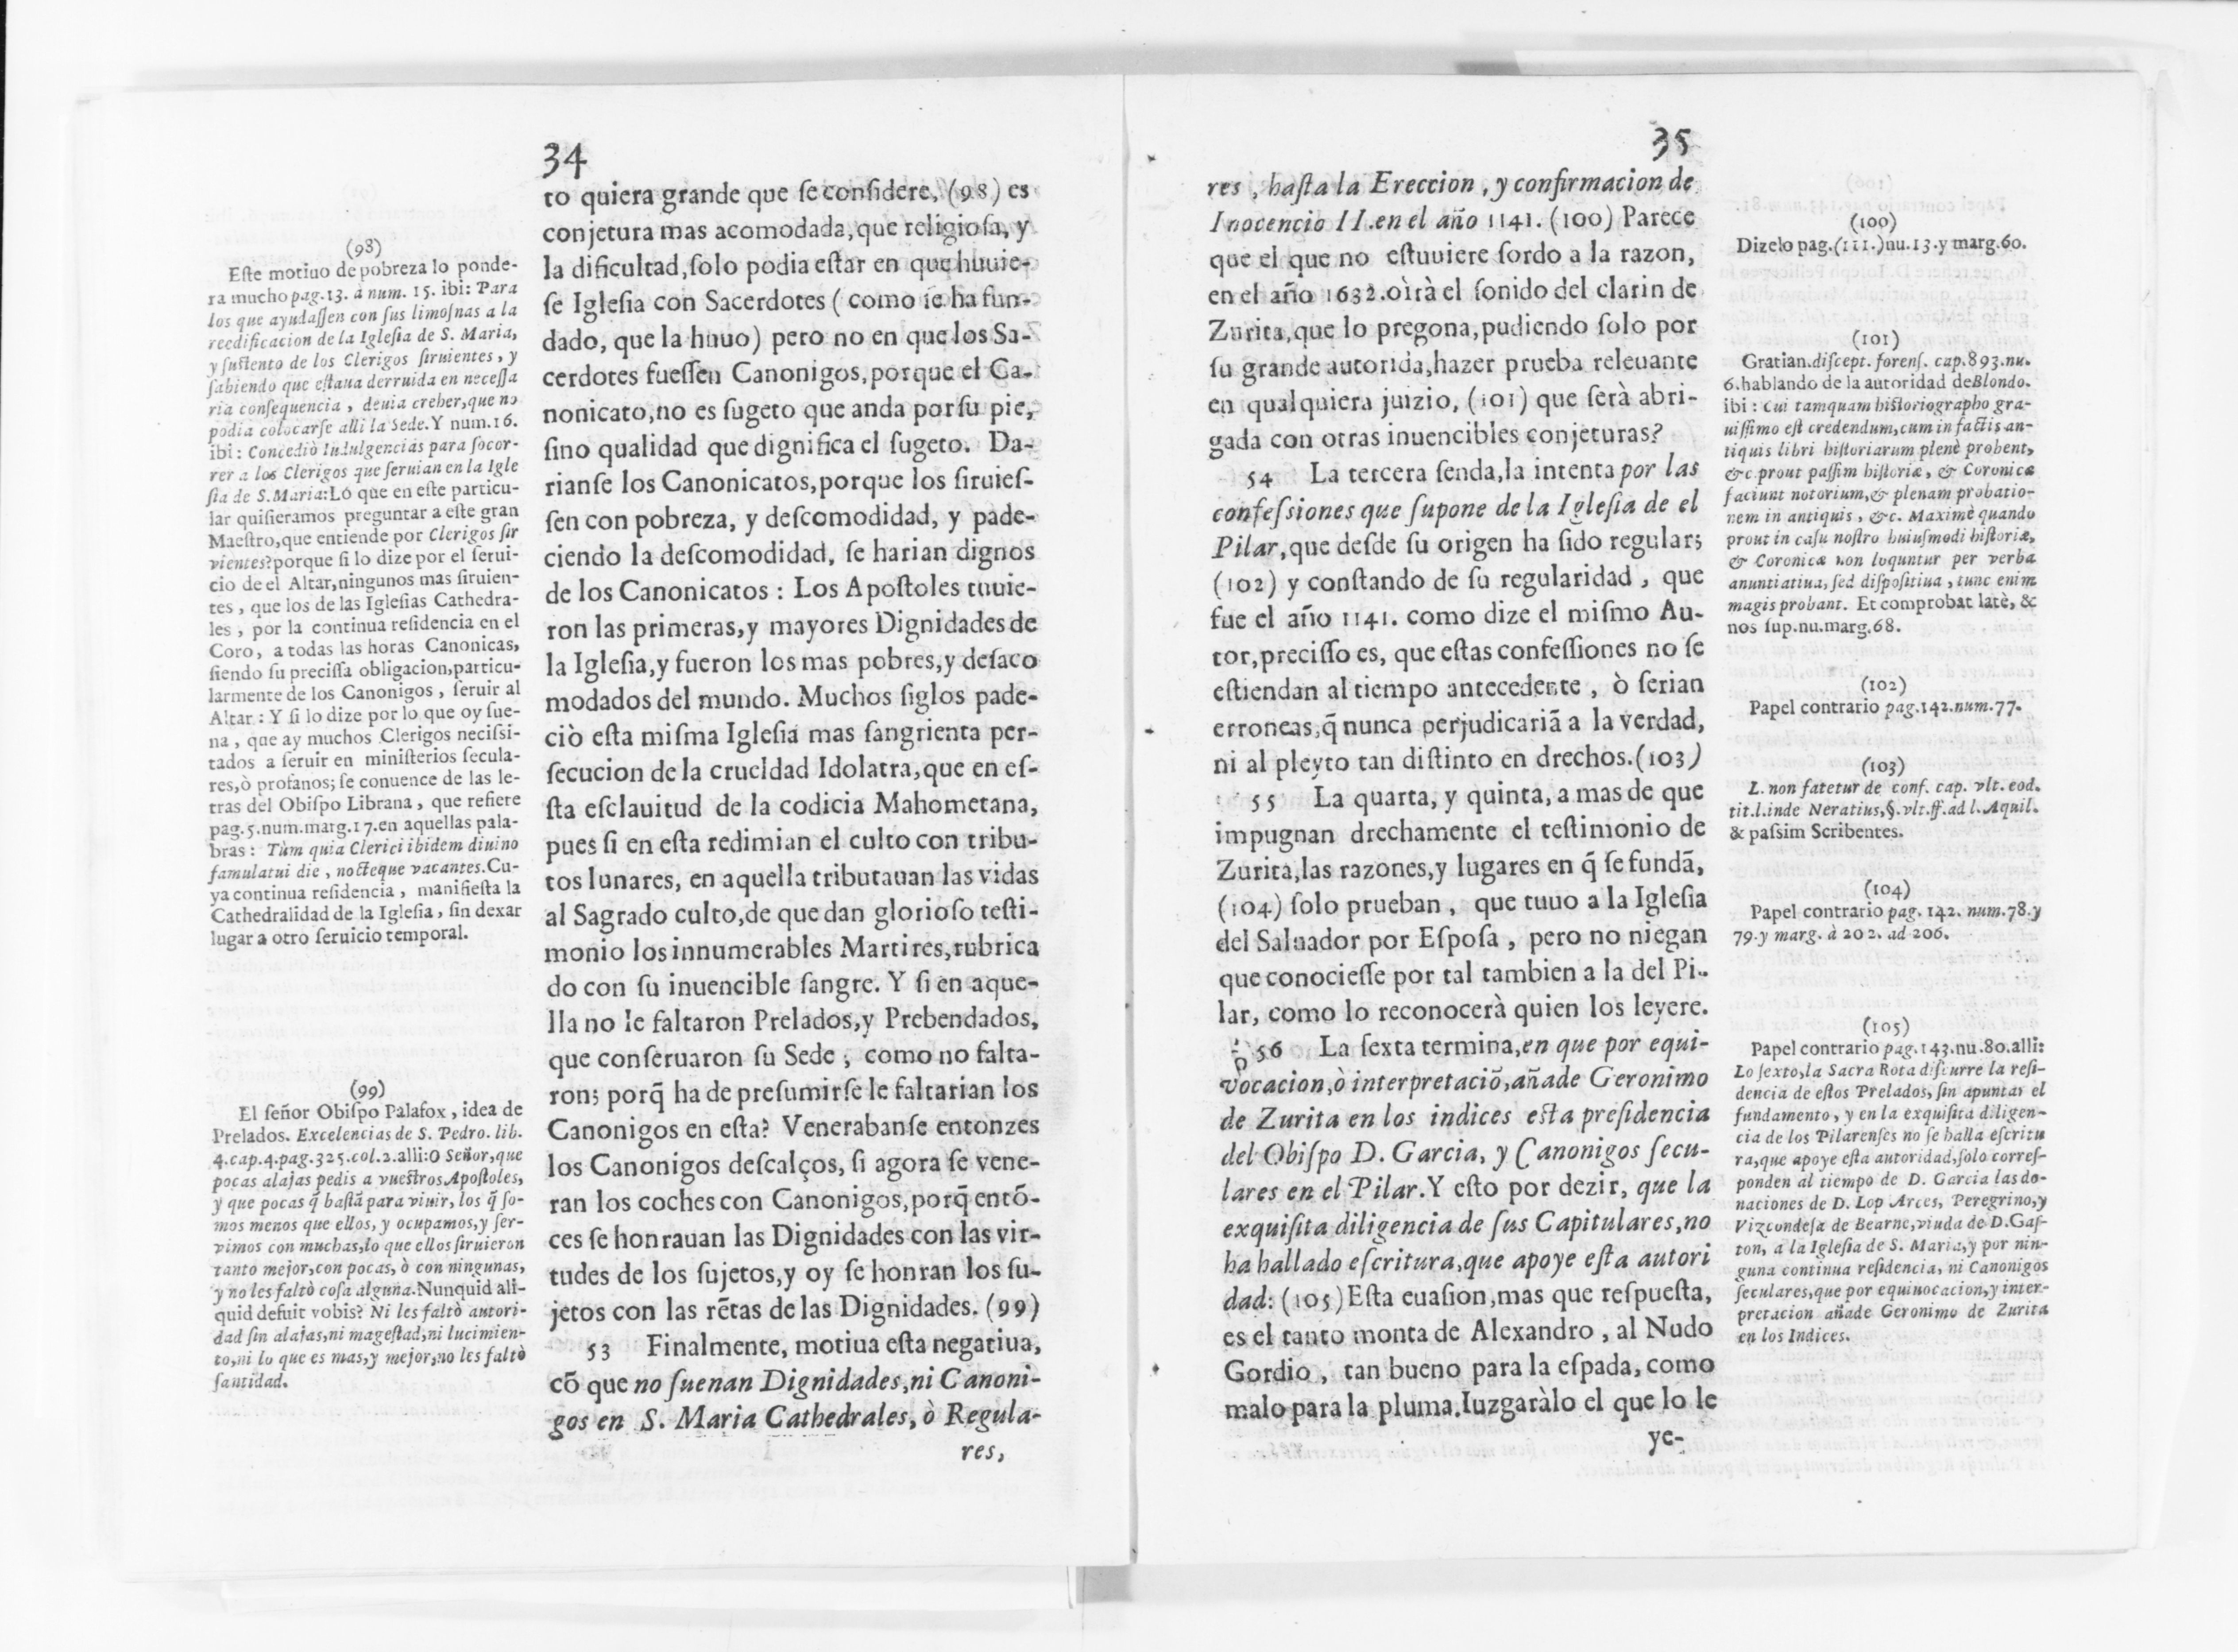 34
(98)
Este motiuo de pobreza lo ponde-
ra mucho pag.13. à num. 15. ibi: Para
los que ayudassen con sus limosnas a la
reedificacion de la Iglesia de S. Maria,
y sustento de los Clerigos siruientes, y
sabiendo que estaua derruida en necessa
ria consequencia, deuia creher, que no
podia colocarse alli la Sede. Y num.16.
ibi: Concediò Indulgencias para socor-
rer a los Clerigos que seruian en la Igle
sia de S. Maria: Lo que en este particu-
lar quisieramos preguntar a este gran
Maestro, que entiende por Clerigos sir
vientes? porque si lo dize por el serui-
cio de el Altar, ningunos mas siruien-
tes, que los de las Iglesias Cathedra-
les, por la continua residencia en el
Coro, a todas las horas Canonicas,
siendo su precissa obligacion, particu-
larmente de los Canonigos, seruir al
Altar: Y si lo dize por lo que oy sue-
na, que ay muchos Clerigos necissi-
tados a seruir en ministerios secula-
res, ò profanos; se conuence de las le-
tras del Obispo Librana, que refiere
pag.5.num.marg.17.en aquellas pala-
bras: Tùm quia Clerici ibidem diuino
famulatui die, nocteque vacantes. Cu-
ya continua residencia, manifiesta la
Cathedralidad de la Iglesia, sin dexar
lugar a otro seruicio temporal.
(99)
El señor Obispo Palafox, idea de
Prelados. Excelencias de S. Pedro. lib.
4.cap.4.pag.325.col.2.alli: O Señor, que
pocas alajas pedis a vuestros Apostoles,
y que pocas q̃ bastã para viuir, los q̃ so-
mos menos que ellos, y ocupamos, y ser-
vimos con muchas, lo que ellos siruieron
tanto mejor, con pocas, ò con ningunas,
y no les faltò cosa alguna. Nunquid ali-
quid defuit vobis? Ni les faltò autori-
dad sin alajas, ni magestad, ni lucimien-
to, ni lo que es mas, y mejor, no les faltò
santidad.
to quiera grande que se considere, (98) es
conjetura mas acomodada, que religiosa, y
la dificultad, solo podia estar en que huuie-
se Iglesia con Sacerdotes (como se ha fun-
dado, que la huuo) pero no en que los Sa-
cerdotes fuessen Canonigos, porque el Ca-
nonicato, no es sugeto que anda por su pie,
sino qualidad que dignifica el sugeto. Da-
rianse los Canonicatos, porque los siruies-
sen con pobreza, y descomodidad, y pade-
ciendo la descomodidad, se harian dignos
de los Canonicatos: Los Apostoles tuuie-
ron las primeras, y mayores Dignidades de
la Iglesia, y fueron los mas pobres, y desaco
modados del mundo. Muchos siglos pade-
ciò esta misma Iglesia mas sangrienta per-
secucion de la crueldad Idolatra, que en es-
sta esclauitud de la codicia Mahometana,
pues si en esta redimian el culto con tribu-
tos lunares, en aquella tributauan las vidas
al Sagrado culto, de que dan glorioso testi-
monio los innumerables Martires, rubrica
do con su inuencible sangre. Y si en aque-
lla no le faltaron Prelados, y Prebendados,
que conseruaron su Sede, como no falta-
ron; porq̃ ha de presumirse le faltarian los
Canonigos en esta? Venerabanse entonzes
los Canonigos descalços, si agora se vene-
ran los coches con Canonigos, porq̃ entõ-
ces se honrauan las Dignidades con las vir-
tudes de los sujetos, y oy se honran los su-
jetos con las rẽtas de las Dignidades. (99)
53 Finalmente, motiua esta negatiua,
cõ que no suenan Dignidades, ni Canoni-
gos en S. Maria Cathedrales, ò Regula-
res,
35
res, hasta la Ereccion, y confirmacion de
Inocencio II. en el año 1141. (100) Parece
que el que no estuuiere sordo a la razon,
en el año 1632. oìrà el sonido del clarin de
Zurita, que lo pregona, pudiendo solo por
su grande autorida, hazer prueba releuante
en qualquiera juizio, (101) que serà abri-
gada con otras inuencibles conjeturas?
54 La tercera senda, la intenta por las
confessiones que supone de la Iglesia de el
Pilar, que desde su origen ha sido regular;
(102) y constando de su regularidad, que
fue el año 1141. como dize el mismo Au-
tor, precisso es, que estas confessiones no se
estiendan al tiempo antecedente, ò serian
erroneas, q̃ nunca perjudicariã a la verdad,
ni al pleyto tan distinto en drechos. (103)
55 La quarta, y quinta, a mas de que
impugnan drechamente el testimonio de
Zurita, las razones, y lugares en q̃ se fundã,
(104) solo prueban, que tuuo a la Iglesia
del Saluador por Esposa, pero no niegan
que conociesse por tal tambien a la del Pi-
lar, como lo reconocerà quien los leyere.
56 La sexta termina, en que por equi-
vocacion, ò interpretaciõ, añade Geronimo
de Zurita en los indices esta presidencia
del Obispo D. Garcia, y Canonigos secu-
lares en el Pilar. Y esto por dezir, que la
exquisita diligencia de sus Capitulares, no
ha hallado escritura, que apoye esta autori
dad: (105) Esta euasion, mas que respuesta,
es el tanto monta de Alexandro, al Nudo
Gordio, tan bueno para la espada, como
malo para la pluma. Iuzgaràlo el que lo le
ye-
(100)
Dizelo pag.(111.)nu.13.y marg.60.
(101)
Gratian.discept. forens. cap.893.nu.
6.hablando de la autoridad de Blondo.
ibi: Cui tamquam historiographo gra-
uissimo est credendum, cum in factis an-
tiquis libri historiarum plenè probent,
&c prout passim historiæ, & Coronicæ
faciunt notorium, & plenam probatio-
nem in antiquis, &c. Maximè quando
prout in casu nostro huiusmodi historiæ,
& Coronicæ non loquntur per verba
anuntiatiua, sed dispositiua, tunc enim
magis probant. Et comprobat latè, &
nos sup.nu.marg.68.
(102)
Papel contrario pag.142.num.77.
(103)
L. non fatetur de conf. cap. vlt. eod.
tit.l.inde Neratius,§.vlt.ff.ad l. Aquil.
& passim Scribentes.
(104)
Papel contrario pag. 142. num.78.y
79.y marg. à 202. ad 206.
(105)
Papel contrario pag.143.nu.80.alli:
Lo sexto, la Sacra Rota discurre la resi-
dencia de estos Prelados, sin apuntar el
fundamento, y en la exquisita diligen-
cia de los Pilarenses no se halla escritu
ra, que apoye esta autoridad, solo corres-
ponden al tiempo de D. Garcia las do-
naciones de D. Lop Arces, Peregrino, y
Vizcondesa de Bearne, viuda de D. Gas-
ton, a la Iglesia de S. Maria, y por nin-
guna continua residencia, ni Canonigos
seculares, que por equiuocacion, y inter-
pretacion añade Geronimo de Zurita
en los Indices.